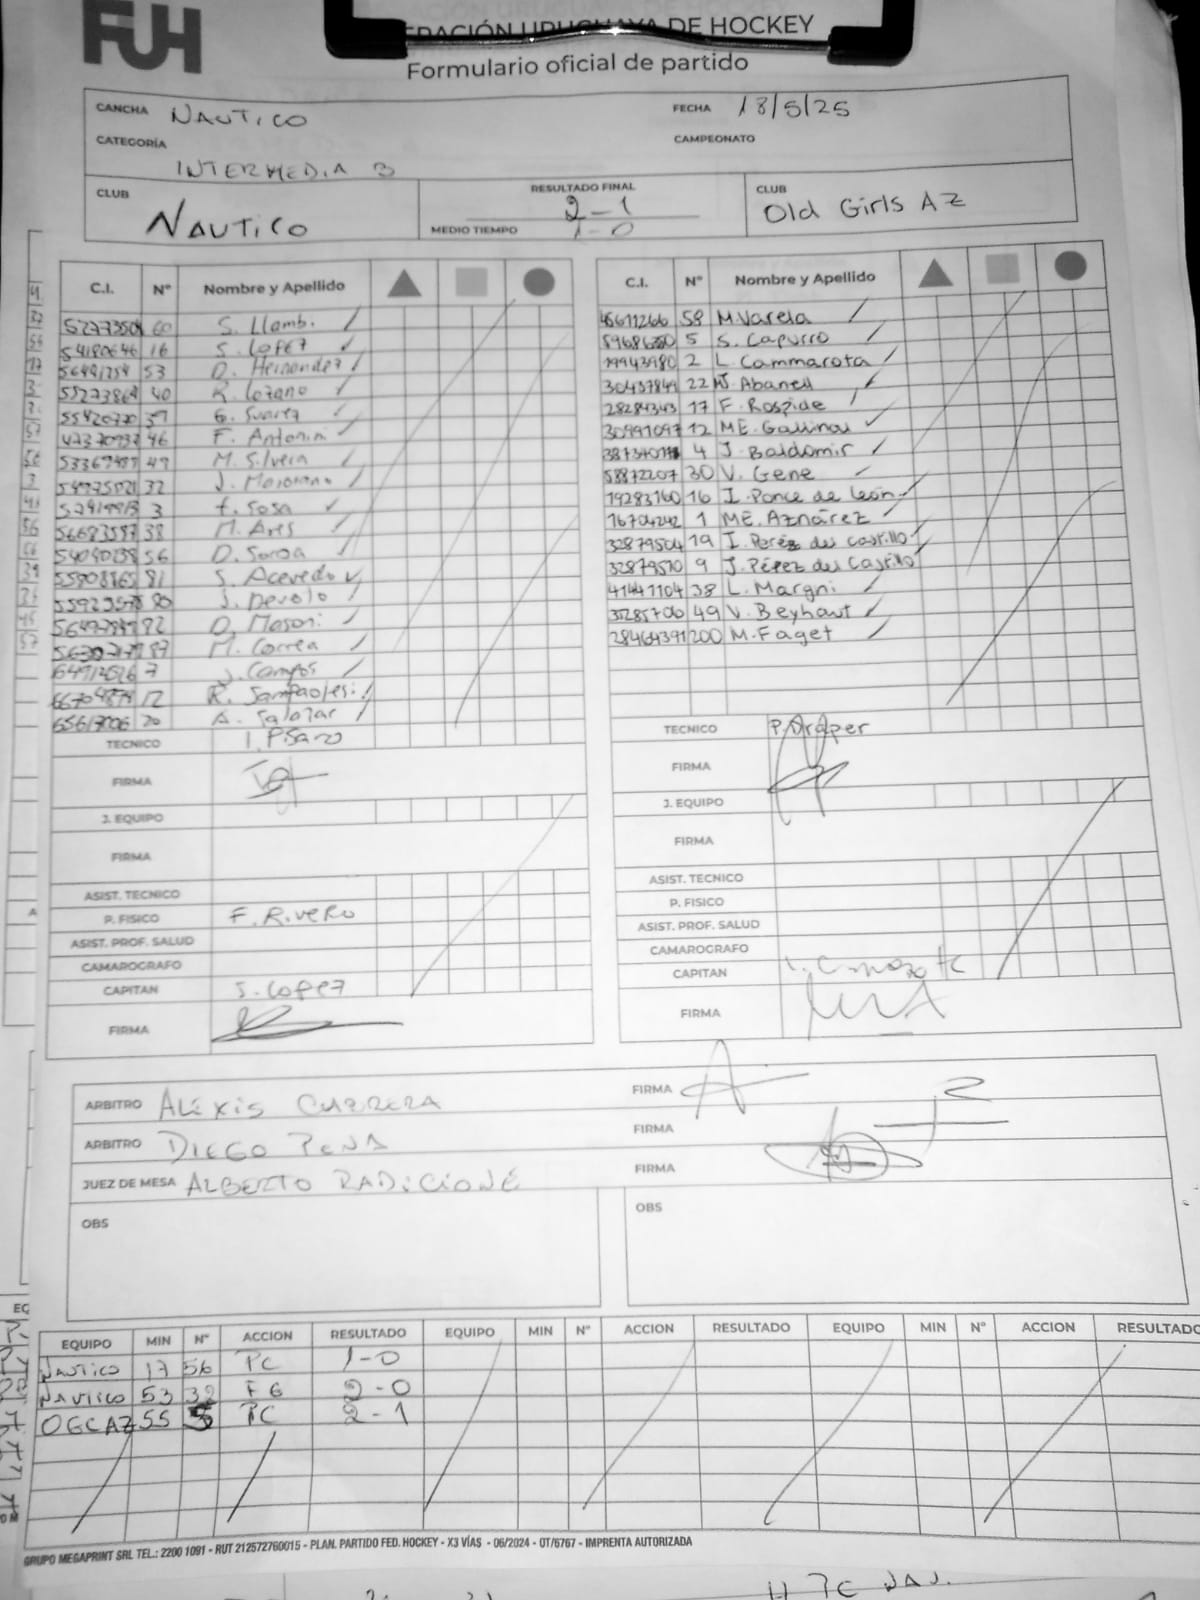 FUH
FEDERACIÓN URUGUAYA DE HOCKEY
Formulario oficial de partido
CANCHA NAUTICO FECHA 18/5/25
CATEGORÍA INTERMEDIA B CAMPEONATO
CLUB NAUTICO RESULTADO FINAL 2-1 CLUB Old Girls AZ
MEDIO TIEMPO 1-0
C.I. N° Nombre y Apellido C.I. N° Nombre y Apellido
60 S. Llambi. 58 M.Varela
16 S. Lopez 5 S. Capurro
53 D. Hernandez 19943980 2 L. Cammarota
40 R. Lozano 30437849 22 M. Abanell
G. Suarez 28284343 17 F. Rospide
46 F. Antonini 30991097 12 ME. Gallinal
49 M. Silvera 4 J. Baldomir
32 J. 58872207 30 V. Gene
3 f. Sosa 19283160 16 I. Ponce de León
56683597 38 M. Ares 16704242 1 ME. Aznárez
56 D. Soroa 32879504 19 I. Peréz del Castillo
81 S. Acevedo 32879510 9 J. Pérez del Castillo
80 J. Devoto 41441104 38 L. Margni
92 D. Masoni 49 V. Beyhaut
87 M. Correa 28464391 200 M.Faget
7 J. Campos
12 R. Sampaolesi
20 A. Salazar
TECNICO I. Pisano TECNICO P. Draper
FIRMA FIRMA
J. EQUIPO J. EQUIPO
FIRMA FIRMA
ASIST. TECNICO ASIST. TECNICO
P. FISICO F. Rivero P. FISICO
ASIST. PROF. SALUD ASIST. PROF. SALUD
CAMAROGRAFO CAMAROGRAFO
CAPITAN S. Lopez CAPITAN
FIRMA FIRMA
ARBITRO ALEXIS CABRERA FIRMA
ARBITRO DIEGO PENA FIRMA
JUEZ DE MESA ALBERTO RADICIONE FIRMA
OBS OBS
EQUIPO MIN N° ACCION RESULTADO EQUIPO MIN N° ACCION RESULTADO EQUIPO MIN N° ACCION RESULTADO
NAUTICO 17 56 PC 1-0
NAUTICO 53 32 FG 2-0
OGCAZ 55 5 PC 2-1
GRUPO MEGAPRINT SRL TEL.: 2200 1091 - RUT 212572760015 - PLAN. PARTIDO FED. HOCKEY - X3 VÍAS - 06/2024 - OT/6767 - IMPRENTA AUTORIZADA